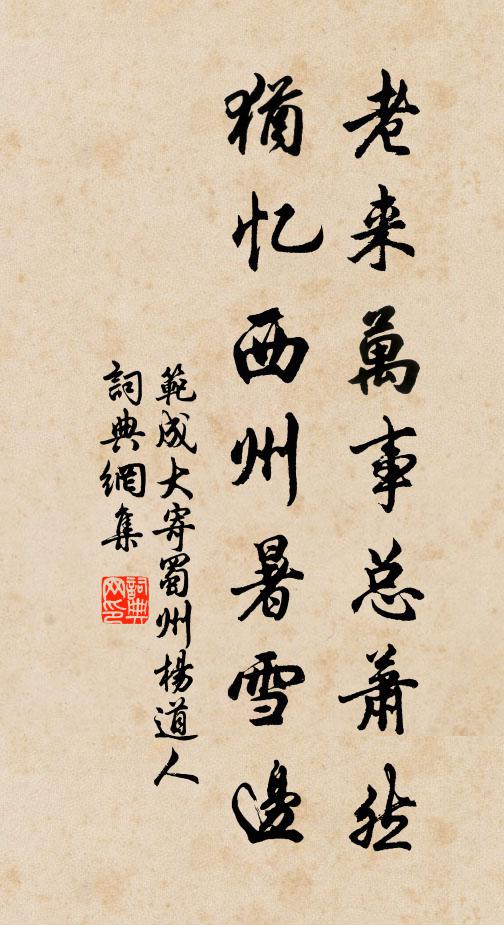 老来萬事总蕭然
猶忆西州暑雪邊
範成大寄蜀州楊道人
詞典網集
詞典
网印